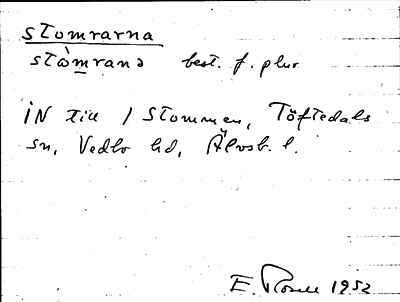 stomrarna
stòmranə best. f. plur
IN till / Stommen, Töftedals
sn, Vedbo hd, Älvsb. l.
E. Rosell 1952